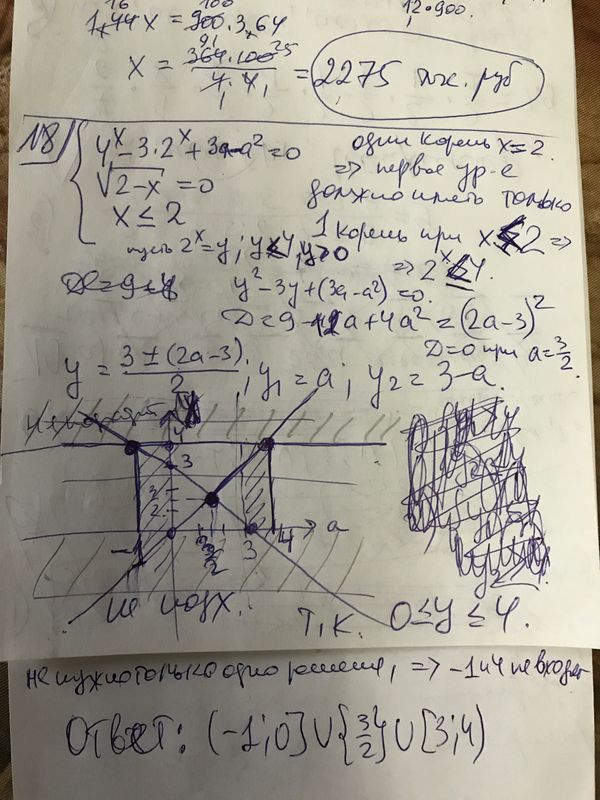 16 100
1,44x = 900·3,64 12·900.
x = 364·100 25 / 4·4 = 2275 тыс. руб
91
1 1
N8
4^x - 3·2^x + 3a - a² = 0 один корень x=2.
√2-x = 0 => первое ур-е
x ≤ 2 должно иметь только
1 корень при x 2 =>
пусть 2^x = y; y 4, y>0
=> 2^x 4.
y² - 3y + (3a - a²) = 0.
D = 9 - 12a + 4a² = (2a-3)²
D=0 при a = 3/2.
y = 3 ± (2a-3) / 2; y₁ = a; y₂ = 3-a.
4
3
3/2
-1 3/2 3 4 a
не подх. т.к. 0 ≤ y ≤ 4.
нужно только одно решение, => -1 и 4 не входят
Ответ: (-1;0] ∪ {3/2} ∪ [3;4)